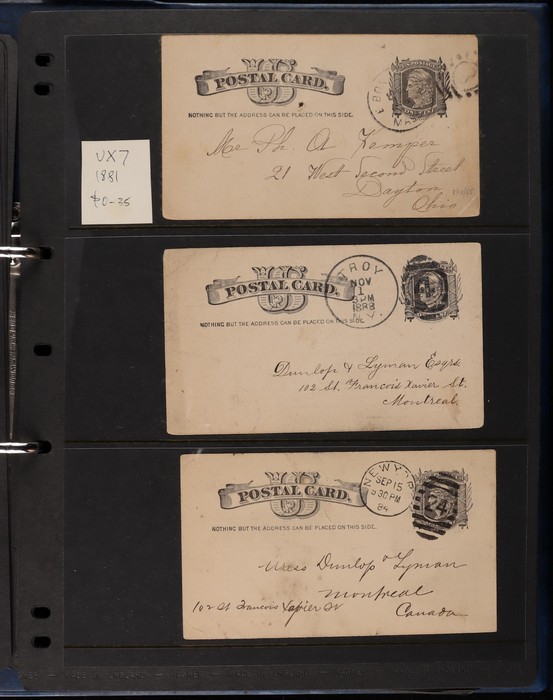 US
POSTAL CARD.
NOTHING BUT THE ADDRESS CAN BE PLACED ON THIS SIDE.
MASS
Mr Ph. A Kemper
21 West Second Street
Dayton
Ohio
UX7
1881
$0-35
US
POSTAL CARD.
NOTHING BUT THE ADDRESS CAN BE PLACED ON THIS SIDE.
TROY
NOV
1
PM
1888
N.Y.
Dunlop & Lyman Esqrs.
102 St. Francois Xavier St.
Montreal
US
POSTAL CARD.
NOTHING BUT THE ADDRESS CAN BE PLACED ON THIS SIDE.
NEW YOR
SEP 15
930 PM
84
24
Mess Dunlop & Lyman
Montreal
102 St Francois Xavier St
Canada